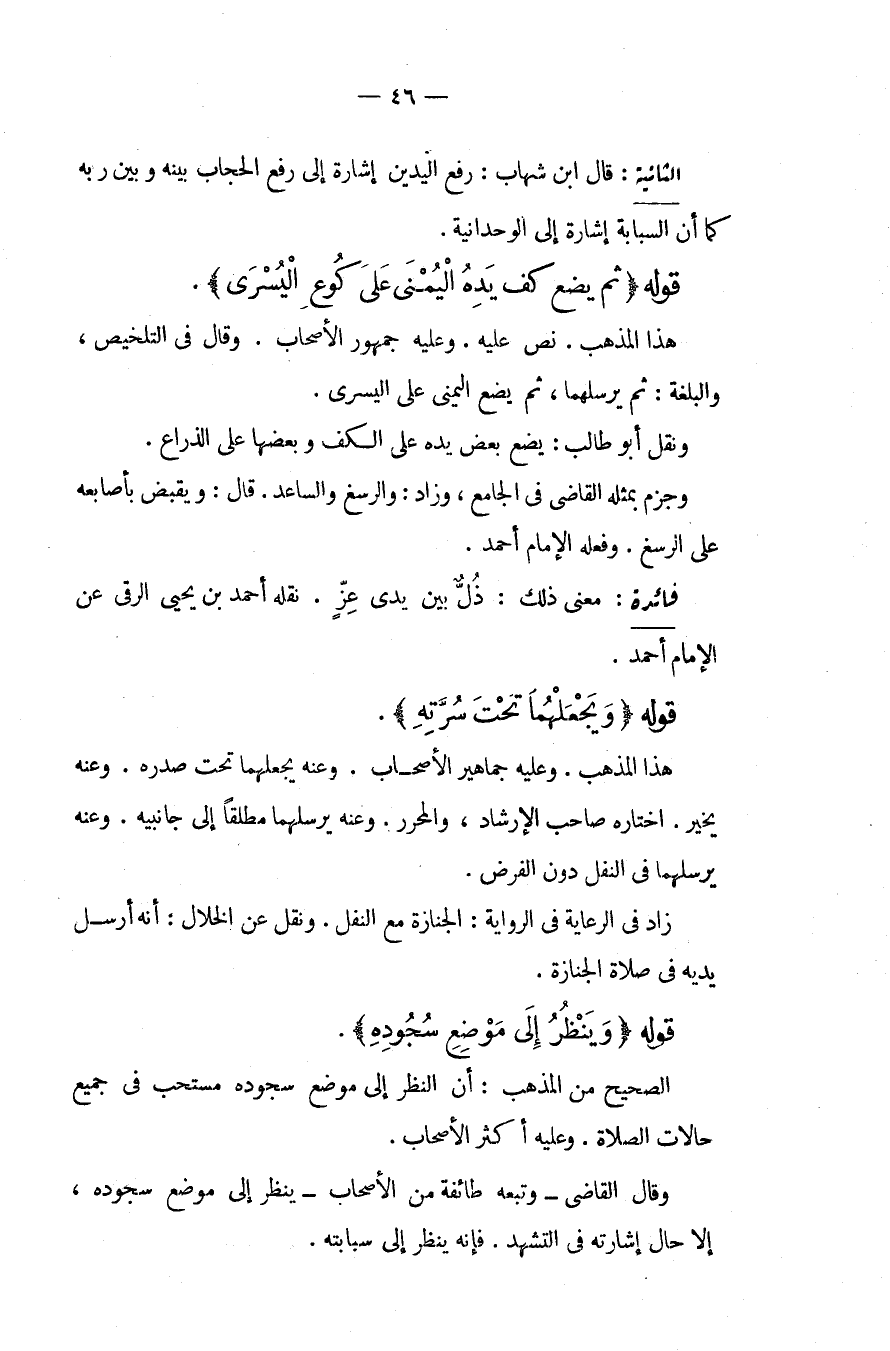 — ٤٦ —
الثانية : قال ابن شهاب : رفع اليدين إشارة إلى رفع الحجاب بينه و بين ربه
كما أن السبابة إشارة إلى الوحدانية .
قوله ﴿ ثم يضع كف يَدِهُ الْيُمْنَى عَلَى كُوعِ الْيُسْرَى ﴾ .
هذا المذهب . نص عليه . وعليه جمهور الأصحاب . وقال فى التلخيص ،
والبلغة : ثم يرسلهما ، ثم يضع اليمنى على اليسرى .
ونقل أبو طالب : يضع بعض يده على الـكف و بعضها على الذراع .
وجزم بمثله القاضى فى الجامع ، وزاد : والرسغ والساعد . قال : و يقبض بأصابعه
على الرسغ . وفعله الإمام أحمد .
فائدة : معنى ذلك : ذُلٌّ بين يدى عِزٍّ . نقله أحمد بن يحيى الرقى عن
الإمام أحمد .
قوله ﴿ وَيَجْعَلْهُمَا تَحْتَ سُرَّتِهِ ﴾ .
هذا المذهب . وعليه جماهير الأصحـاب . وعنه يجعلهما تحت صدره . وعنه
يخير . اختاره صاحب الإرشاد ، والمحرر . وعنه يرسلهما مطلقاً إلى جانبيه . وعنه
يرسلهما فى النفل دون الفرض .
زاد فى الرعاية فى الرواية : الجنازة مع النفل . ونقل عن الخلال : أنه أرسـل
يديه فى صلاة الجنازة .
قوله ﴿ وَيَنْظُرُ إِلَى مَوْضِعِ سُجُودِهِ ﴾ .
الصحيح من المذهب : أن النظر إلى موضع سجوده مستحب فى جميع
حالات الصلاة . وعليه أكثر الأصحاب .
وقال القاضى ــ وتبعه طائفة من الأصحاب ــ ينظر إلى موضع سجوده ،
إلا حال إشارته فى التشهد . فإنه ينظر إلى سبابته .